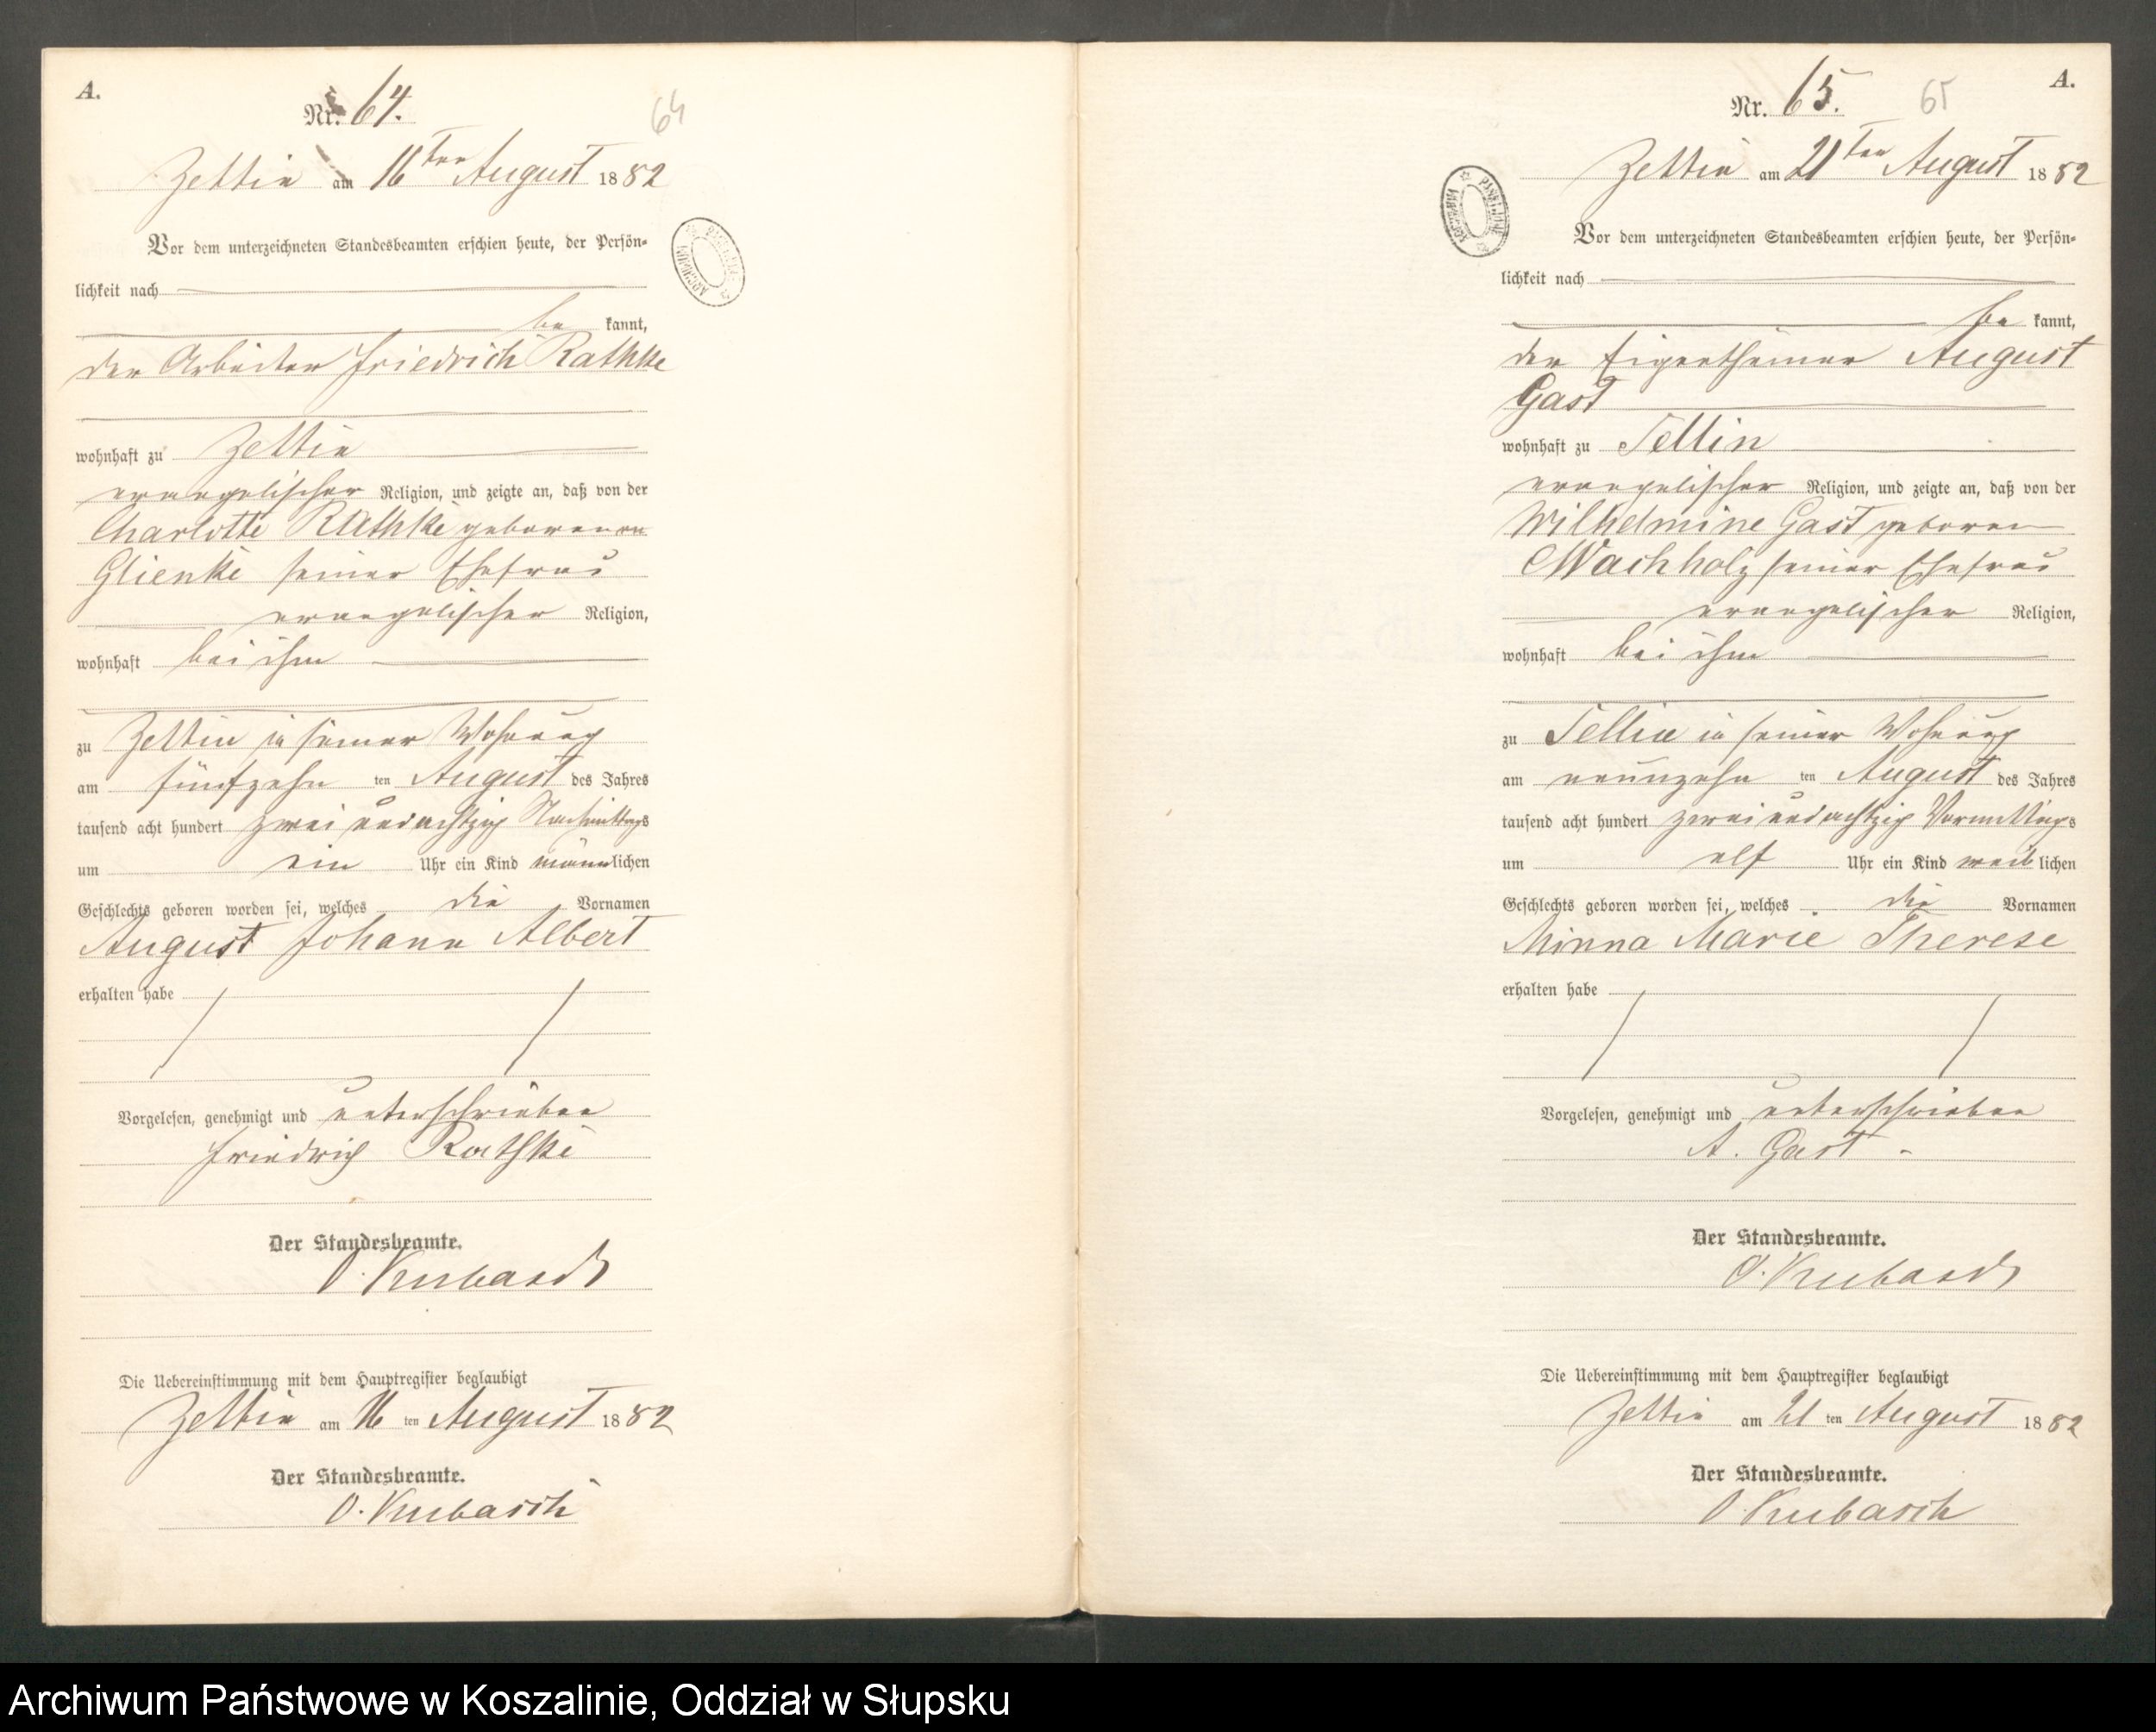 A.
Nr. 64.
64
Zettin am 16ten August 1882
Vor dem unterzeichneten Standesbeamten erschien heute, der Persön-
lichkeit nach
be kannt,
der Arbeiter Friedrich Rathke
wohnhaft zu Zettin
evangelischer Religion, und zeigte an, daß von der
Charlotte Rathke geborenen
Glienke seiner Ehefrau
evangelischer Religion,
wohnhaft bei ihm
zu Zettin in seiner Wohnung
am fünfzehn ten August des Jahres
tausend acht hundert zwei und achtzig Nachmittags
um ein Uhr ein Kind männlichen
Geschlechts geboren worden sei, welches die Vornamen
August Johann Albert
erhalten habe
Vorgelesen, genehmigt und unterschrieben
Friedrich Rathke
Der Standesbeamte.
O. Kubasch
Die Uebereinstimmung mit dem Hauptregister beglaubigt
Zettin am 16 ten August 1882
Der Standesbeamte.
O. Kubasch
A.
Nr. 65.
65
Zettin am 21ten August 1882
Vor dem unterzeichneten Standesbeamten erschien heute, der Persön-
lichkeit nach
be kannt,
der Eigenthümer August
Gast
wohnhaft zu Tellin
evangelischer Religion, und zeigte an, daß von der
Wilhelmine Gast geboren
Wachholz seiner Ehefrau
evangelischer Religion,
wohnhaft bei ihm
zu Tellin in seiner Wohnung
am neunzehn ten August des Jahres
tausend acht hundert zwei und achtzig Vormittags
um elf Uhr ein Kind weib lichen
Geschlechts geboren worden sei, welches die Vornamen
Minna Marie Therese
erhalten habe
Vorgelesen, genehmigt und unterschrieben
A. Gast
Der Standesbeamte.
O. Kubasch
Die Uebereinstimmung mit dem Hauptregister beglaubigt
Zettin am 21 ten August 1882
Der Standesbeamte.
O Kubasch
Archiwum Państwowe w Koszalinie, Oddział w Słupsku